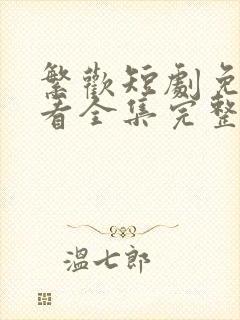 繁歡短劇免
看全集完整
溫七郎